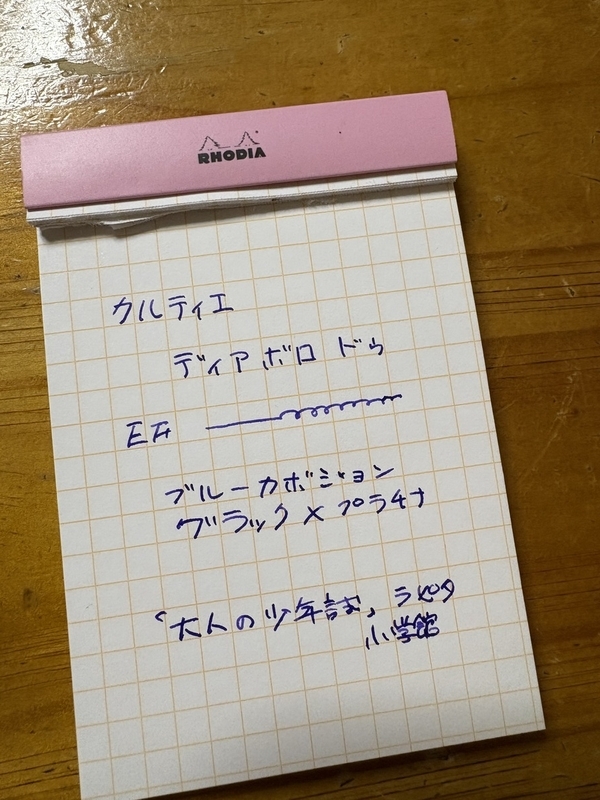 RHODIA
カルティエ
ディアボロ ドゥ
EF
ブルーカボション
ブラック×プラチナ
「大人の少年誌」ラピタ
小学館